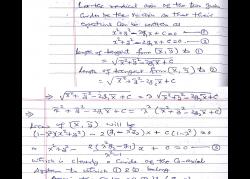 Let the radical axis of the two given
Circles be the                   so that their
equations can be written as
x²+y²-2g₁x+c=0 — ①
x²+y²-2g₂x+c=0 — ②
length of tangent from (x̄, ȳ) to ①
= √x̄²+ȳ²-2g₁x̄+c
length of tangent from (x̄, ȳ) to ②
= √x̄²+ȳ²-2g₂x̄+c
⇒ √x̄²+ȳ²-2g₁x̄+c = λ√x̄²+ȳ²-2g₂x̄+c
⇒ x̄²+ȳ²-2g₁x̄+c = λ²(x̄²+ȳ²-2g₂x̄+c)
Locus of (x̄, ȳ) will be
(1-λ²)(x²+y²) - 2(g₁-λ²g₂)x + c(1-λ²) = 0
x²+y² - 2 x + c = 0 — ③
which is clearly a Circle of the Co-axial
System to which ① & ② belong